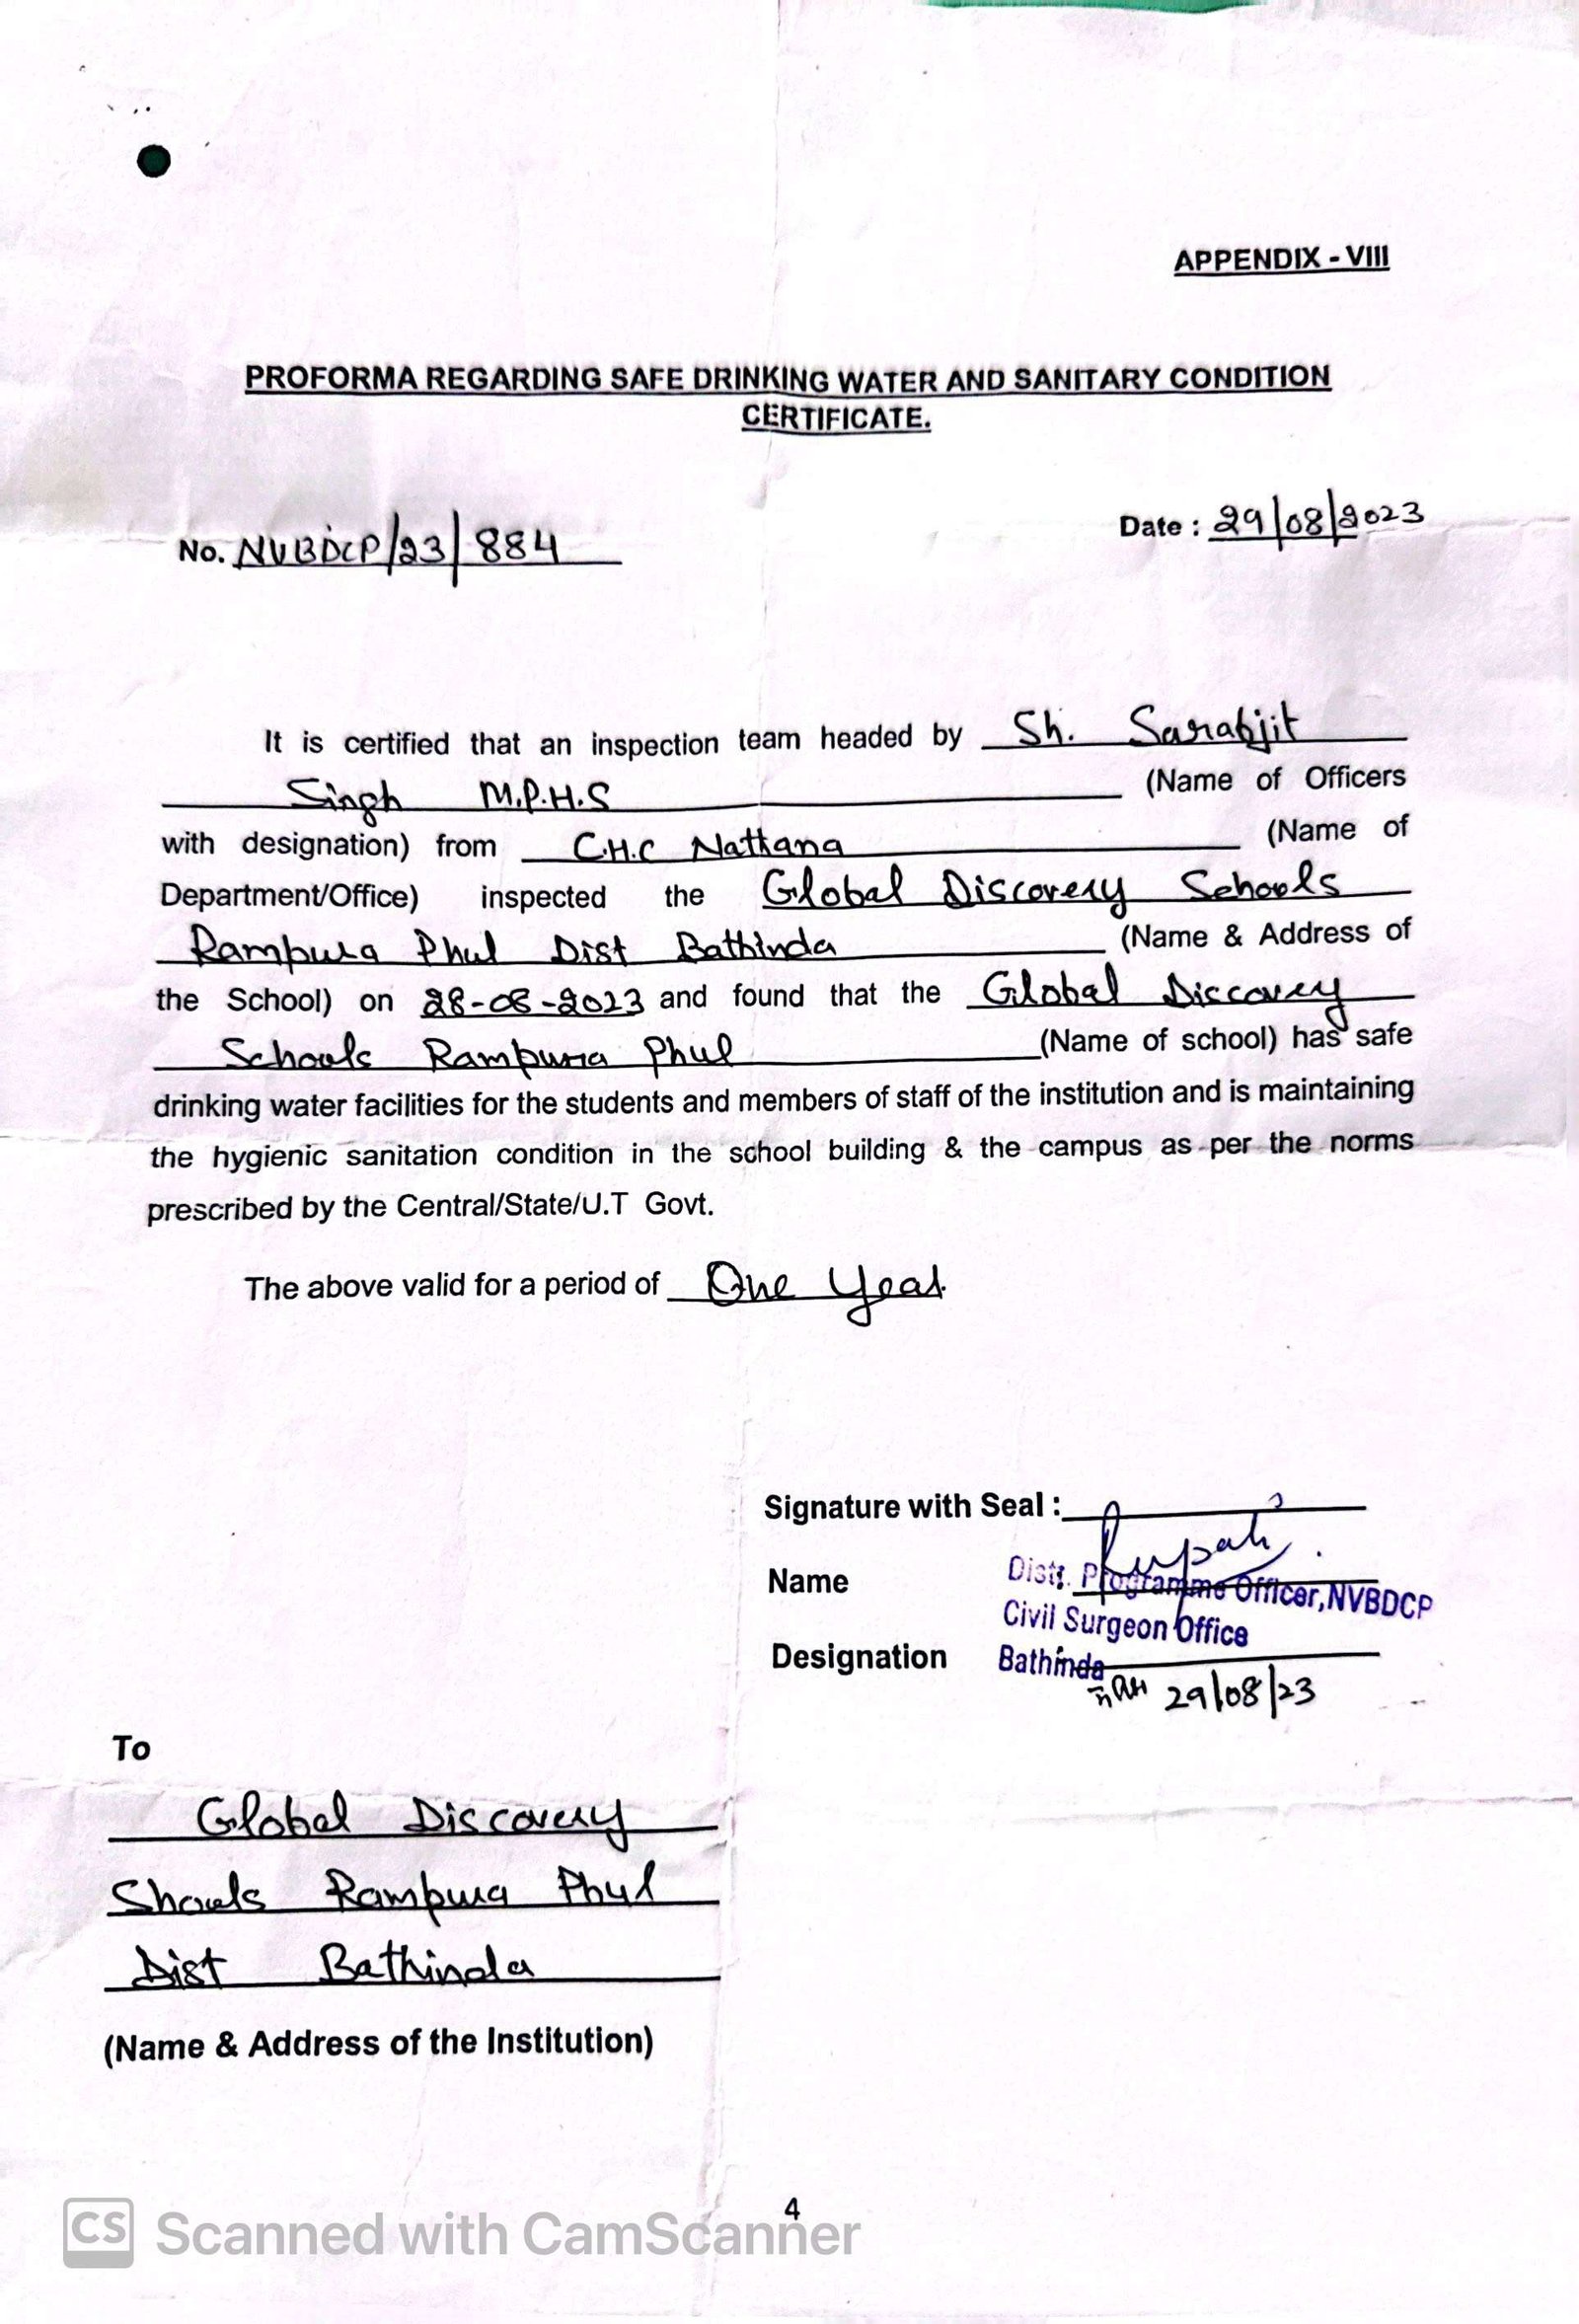 APPENDIX - VIII
PROFORMA REGARDING SAFE DRINKING WATER AND SANITARY CONDITION
CERTIFICATE.
No. NVBDCP/23/884
Date : 29/08/2023
It is certified that an inspection team headed by Sh. Sarabjit
Singh M.P.H.S (Name of Officers
with designation) from C.H.C Nathana (Name of
Department/Office) inspected the Global Discovery Schools
Rampura Phul Dist Bathinda (Name & Address of
the School) on 28-08-2023 and found that the Global Discovery
Schools Rampura Phul (Name of school) has safe
drinking water facilities for the students and members of staff of the institution and is maintaining
the hygienic sanitation condition in the school building & the campus as per the norms
prescribed by the Central/State/U.T Govt.
The above valid for a period of One Year
Signature with Seal :
Name
Distt. Programme Officer, NVBDCP
Civil Surgeon Office
Designation Bathinda
29/08/23
To
Global Discovery
Shools Rampura Phul
Dist Bathinda
(Name & Address of the Institution)
4
CS Scanned with CamScanner